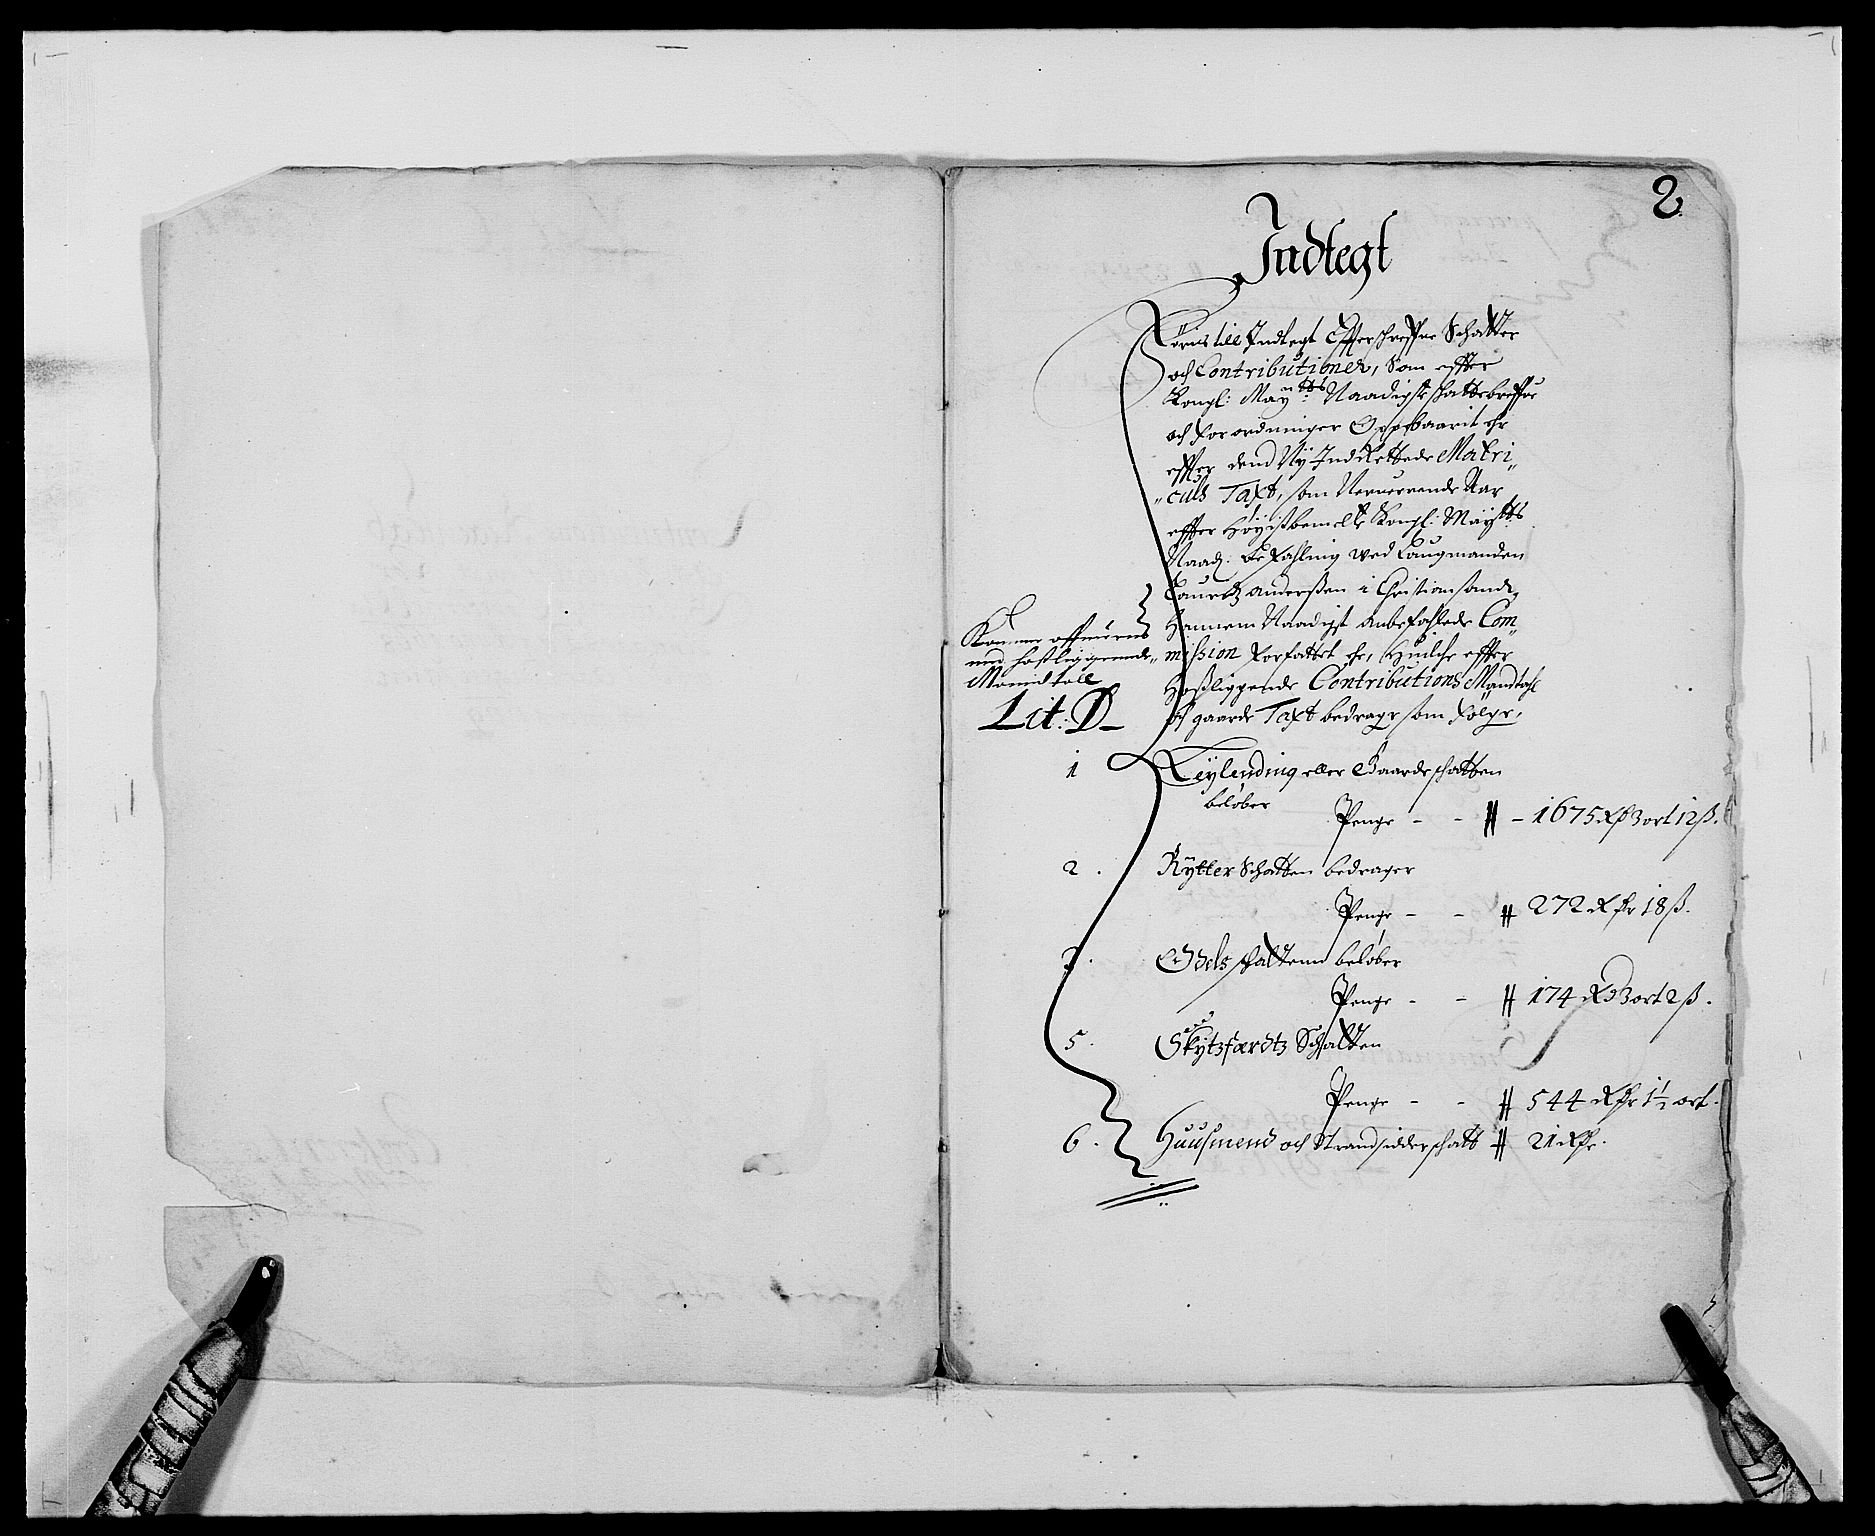 2
Indtegt
Føris till Indtegt Effterschreffne Schatter
och Contributioner, Som effter
Kongl: Mayttts Naadigste schattebreffue
och forordninger Oppebaarit ehr
effter dend Ny IndRettede Matri„
„culs Taxt, som Neruerende Aar
effter Høystbemelte Kongl: Maystts
Naad. befahling wed Laugmanden
Lauretz Anderssen i Christiansand,
Hannem Naadigst Anbefahlede Com„
mission forfattet ehr, Huilche effter
Hossliggende Contributions Mandtahl
och gaarde Taxt bedrager som følger,
Kommer offuerens
med hossliggende„
Manndtall
Lit: D
1 Leylending eller Gaardeschatten
beløber
Penge - - # - 1675 Rdr 3 ort 12 ß.
2. Rytter Schatten bedrager
Penge - - # 272 Rdr 18 ß.
3. Odels schattenn beløber
Penge - - # 174 Rd 3 ort 2 ß.
5. Skytzfærdtz Schatten
Penge - - # 544 Rdr 1½ ort.
6. Huusmend och Strandsidderschatt # 21 Rdr.